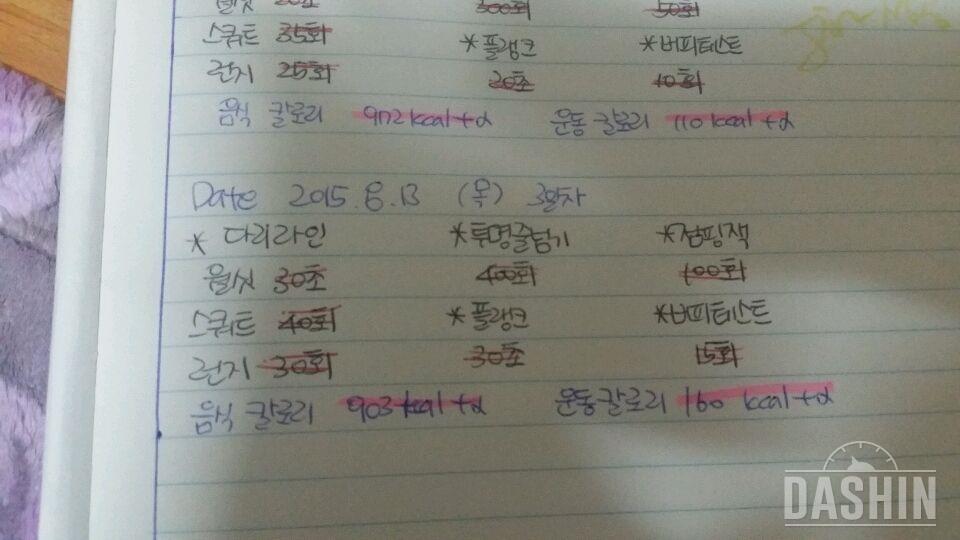 월싯 20초 300회 50회
스쿼트 35회 *플랭크 *버피테스트
런지 25회 20초 10회
음식 칼로리 902 kcal+α 운동칼로리 110 kcal+α
Date 2015. 8. 13 (목) 3일차
* 다리라인 *투명줄넘기 *점핑잭
월싯 30초 400회 100회
스쿼트 40회 *플랭크 *버피테스트
런지 30회 30초 15회
음식 칼로리 903 kcal+α 운동칼로리 160 kcal+α
DASHIN